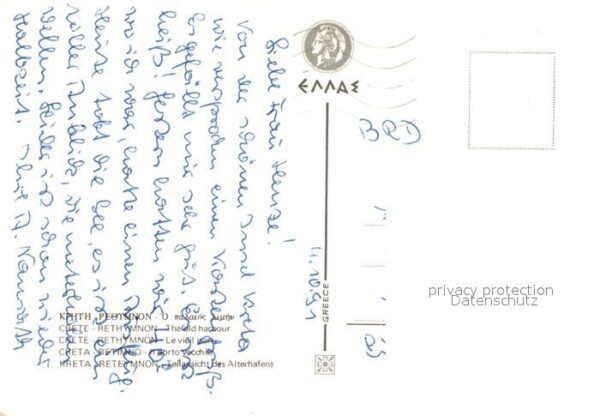 Liebe Frau Henze!
4.10.91
Von der schönen Insel Kreta
wie versprochen einen Kartengruß.
Es gefällt mir sehr gut. Es ist
heiß! Gestern hatten wir 40°
wo ich war, hatte einen
Heute tobt die See, es ist ein
toller Anblick, die meterhohen
Wellen. Leider ist schon wieder
Halbzeit. Ihre A.
ΕΛΛΑΣ
BRD
GREECE
ΚΡΗΤΗ ΡΕΘΥΜΝΟΝ - Ο παλαιός λιμήν
CRETE - RETHYMNON - The old harbour
CRETE - RETHYMNON - Le vieil port
CRETA - RETIMNO - Il porto vecchio
KRETA - RETHYMNON - Teilansicht des Alterhafens
privacy protection
Datenschutz